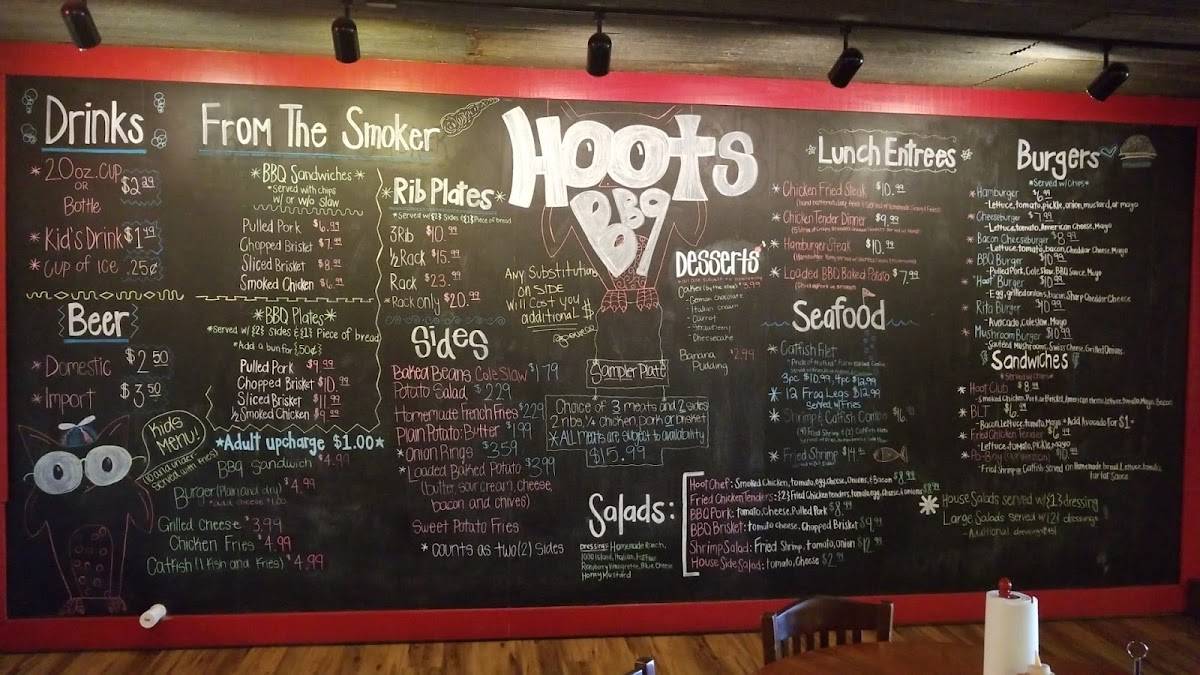 Drinks
*20oz. CUP
OR
Bottle
$2.29
*Kid's Drink $1.49
*Cup of Ice .25¢
Beer
*Domestic $2.50
*Import $3.50
Kids Menu!
served with fries
From The Smoker
*BBQ Sandwiches*
*served with chips
w/ or w/o slaw
Pulled Pork $6.99
Chopped Brisket $7.99
Sliced Brisket $8.99
Smoked Chicken $6.99
*BBQ Plates*
*served w/{2} sides & {1} Piece of bread
*Add a bun for {.50¢}
Pulled Pork $9.99
Chopped Brisket $10.99
Sliced Brisket $11.99
½ Smoked Chicken $9.99
*Adult upcharge $1.00*
BBQ Sandwich $4.99
Burger (Plain and dry) $4.99
Grilled Cheese $3.99
Chicken Fries $4.99
Catfish (1 Fish and Fries) $4.99
Rib Plates*
*Served w/{2} Sides {&}{1} Piece of bread
3 Rib $10.99
½ Rack $15.99
Rack $23.99
*Rack only $20.99
Sides
Baked Beans Cole Slaw $1.79
Potato Salad $2.29
Homemade French Fries $2.29
Plain Potato: Butter $1.99
*Onion Rings $3.59
*Loaded Baked Potato $3.99
(butter, sour cream, cheese,
bacon and chives)
Sweet Potato Fries
*counts as two (2) Sides
Hoots
BBQ
Any Substitution
on SIDE
Will Cost you
additional $
Sampler Plate
Choice of 3 meats and 2 sides
2 ribs, ¼ chicken, pork or brisket
*All meats are subject to availability
$15.99
Desserts
Cakes (by the slice) $3.99
-German chocolate
-Italian cream
-Carrot
-Strawberry
-Cheesecake
Banana $2.99
Pudding
Salads:
Dressings: Homemade Ranch,
1000 Island, Italian,
Raspberry Vinaigrette, Blue Cheese
Honey Mustard
Hoot Chef: Smoked Chicken, tomato, egg, cheese, Onions, & Bacon $8.99
Fried Chicken Tenders: {2} Fried Chicken tenders, tomato, egg, cheese, & onions $8.99
BBQ Pork: tomato, Cheese, Pulled Pork $8.99
BBQ Brisket: tomato cheese, Chopped Brisket $9.99
Shrimp Salad: Fried Shrimp, tomato, onion $12.99
House Side Salad: tomato, Cheese $2.99
*Lunch Entrees*
*Chicken Fried Steak $10.99
*Chicken Tender Dinner $9.99
*Hamburger Steak $10.99
*Loaded BBQ Baked Potato $7.99
Seafood
*Catfish Filet
3pc $10.99, 4pc $12.99
*12 Frog Legs $12.99
Served w/Fries
*Shrimp & Catfish Combo $16.99
*Fried Shrimp $14.99
Burgers
*Served w/Chips*
*Hamburger $6.99
-Lettuce, tomato, pickle, onion, mustard, or mayo
*Cheeseburger $7.99
-Lettuce, tomato, American Cheese, Mayo
*Bacon Cheeseburger $8.99
-Lettuce, tomato, bacon, Cheddar Cheese, Mayo
*BBQ Burger $10.99
-Pulled Pork, Cole Slaw, BBQ Sauce, Mayo
*"Hoot" Burger $10.99
-Egg, grilled onions, bacon, Sharp Cheddar Cheese
*Rita Burger $10.99
-Avocado, Coleslaw, Mayo
*Mushroom Burger $10.99
-Sauteed Mushrooms, Swiss Cheese, Grilled Onions
Sandwiches
*Hoot Club $8.99
*BLT $6.99
-Bacon, Lettuce, tomato, Mayo *Add Avocado For $1-
*Fried Chicken Tender $6.99
-Lettuce, tomato, Pickle, Mayo
-Fried Shrimp or Catfish Served on Homemade bread, Lettuce, tomato,
tartar Sauce
*House Salads served w/{1} dressing
Large Salads served w/{2} dressings
-Additional dressing